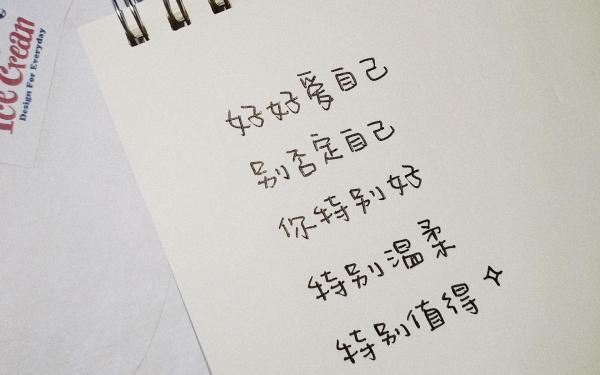 Ice Cream
Design For Everyday
好好爱自己
别否定自己
你特别好
特别温柔
特别值得